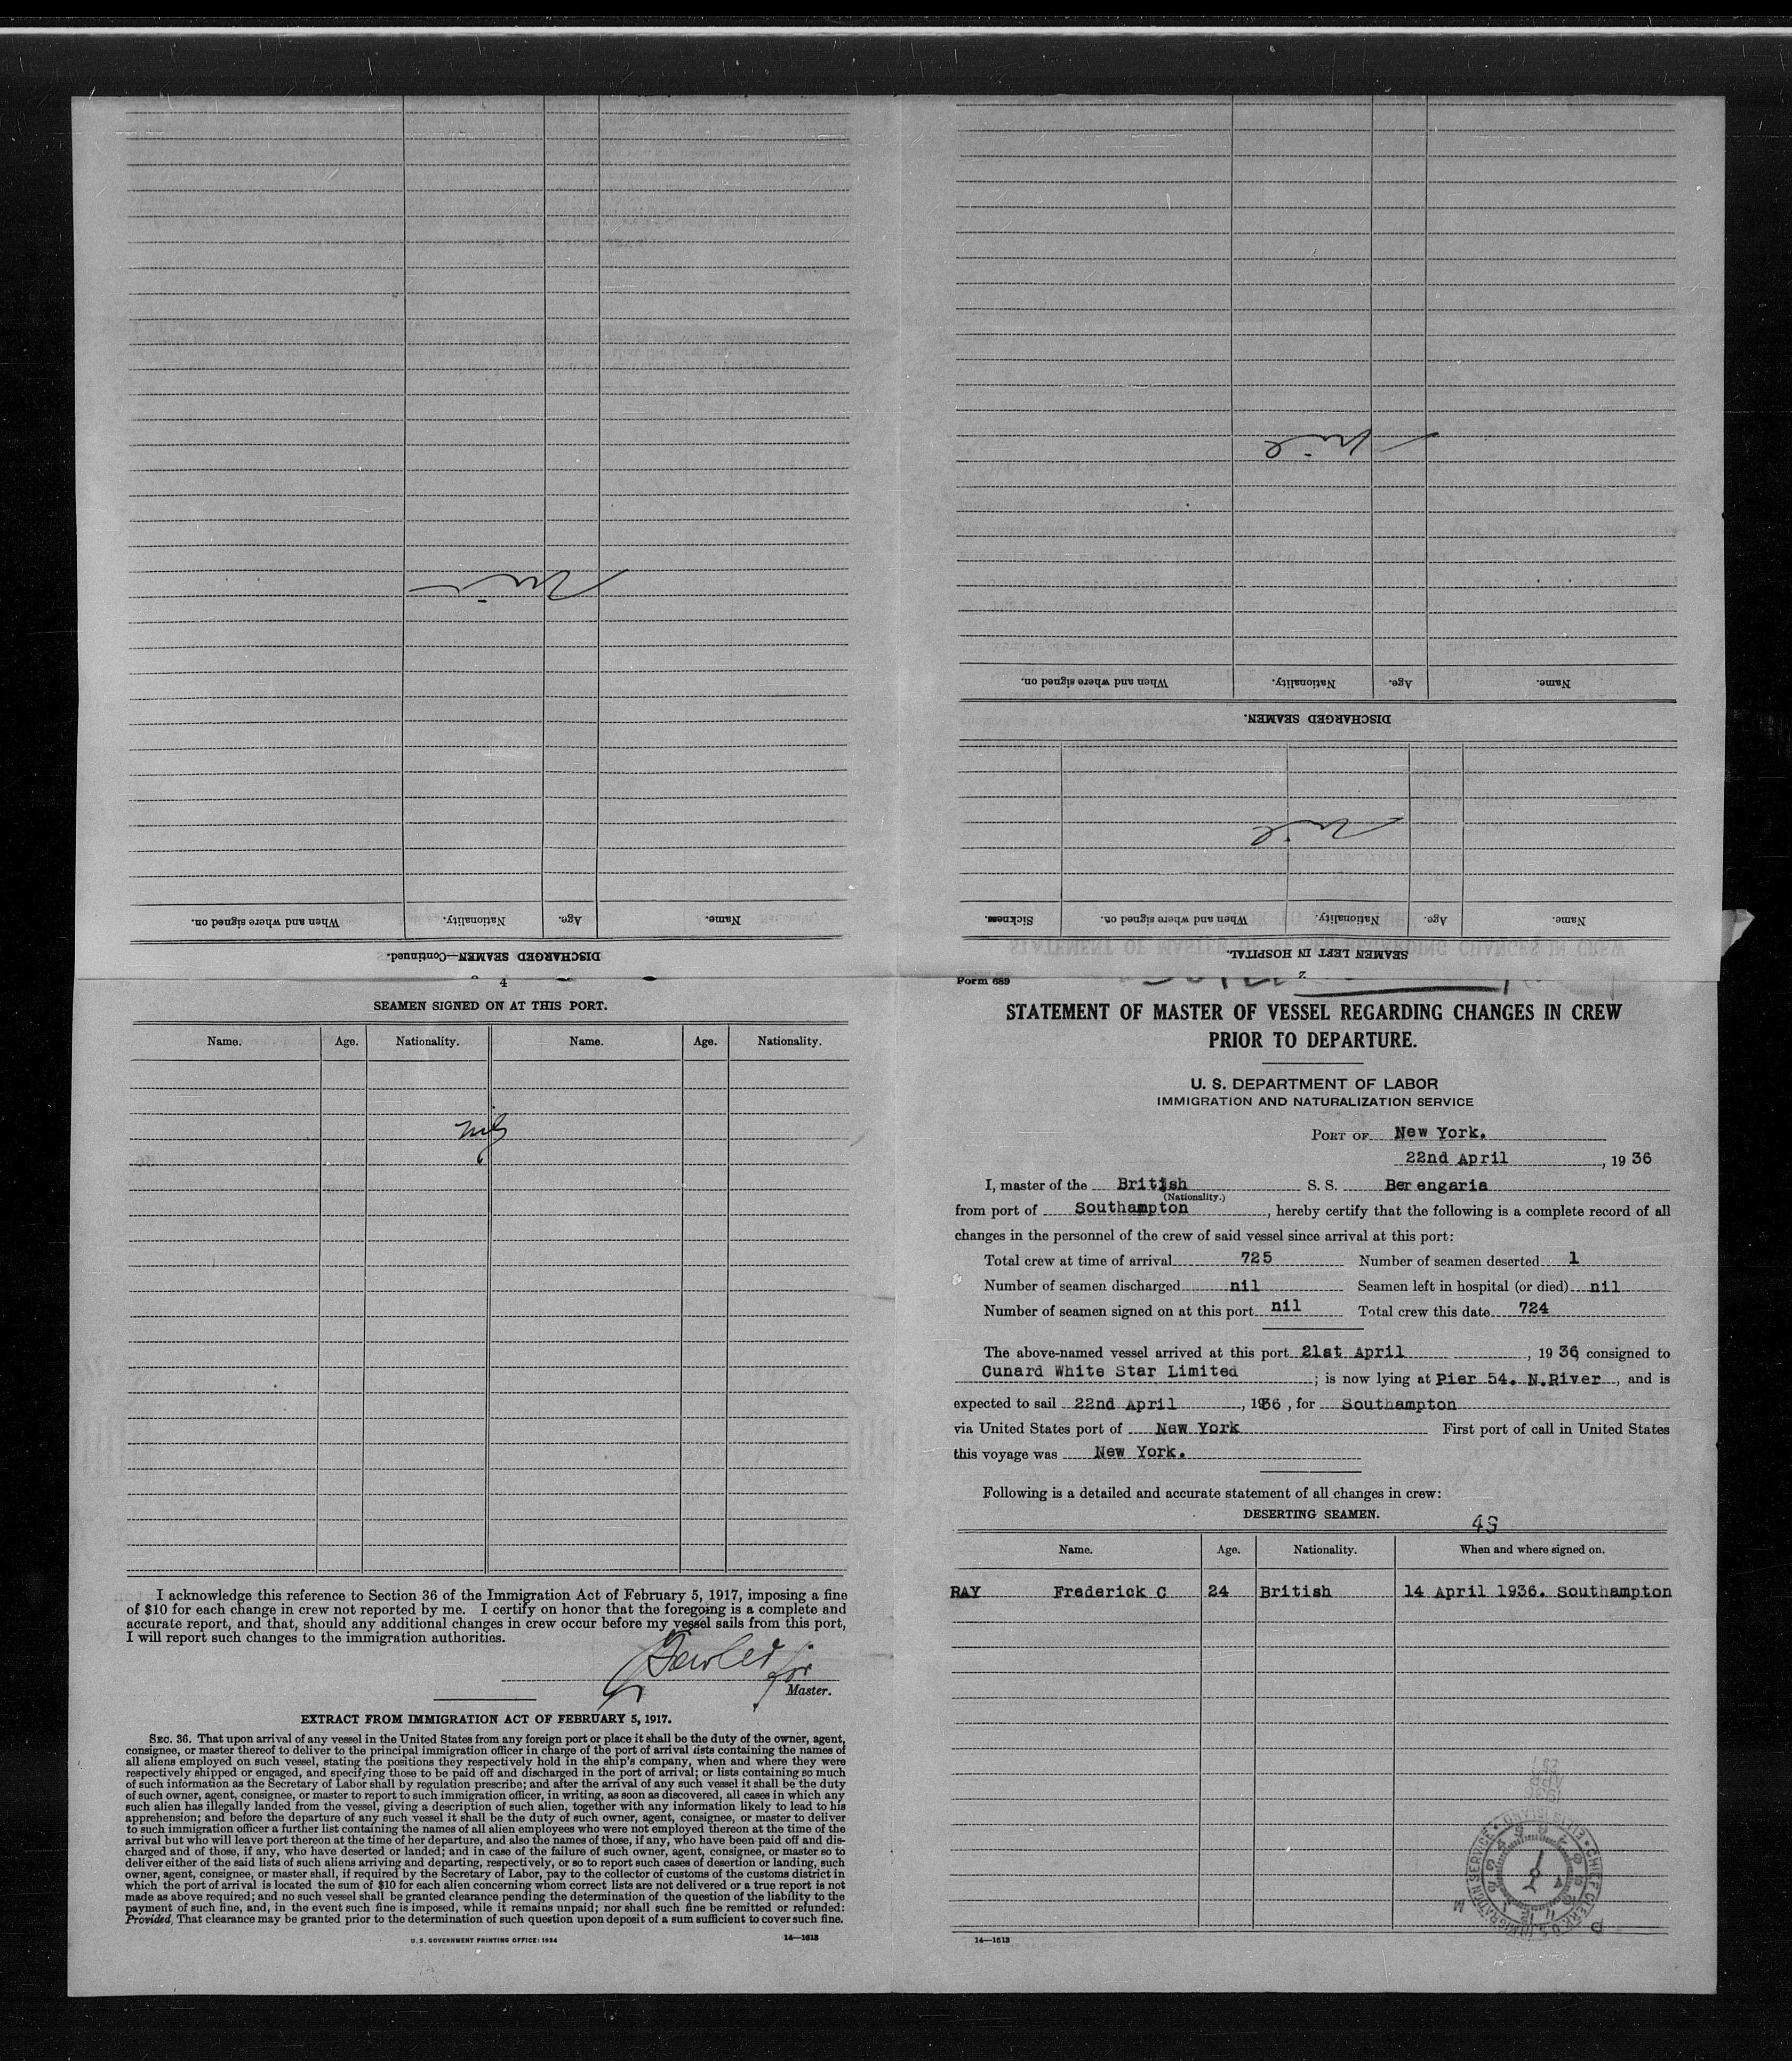 Form 689
STATEMENT OF MASTER OF VESSEL REGARDING CHANGES IN CREW
PRIOR TO DEPARTURE.
U. S. DEPARTMENT OF LABOR
IMMIGRATION AND NATURALIZATION SERVICE
PORT OF New York.
22nd April, 1936
I, master of the British S. S. Berengaria
(Nationality.)
from port of Southampton, hereby certify that the following is a complete record of all
changes in the personnel of the crew of said vessel since arrival at this port:
Total crew at time of arrival 725 Number of seamen deserted 1
Number of seamen discharged nil Seamen left in hospital (or died) nil
Number of seamen signed on at this port nil Total crew this date 724
The above-named vessel arrived at this port 21st April, 1936, consigned to
Cunard White Star Limited; is now lying at Pier 54. N.River, and is
expected to sail 22nd April, 1936, for Southampton
via United States port of New York First port of call in United States
this voyage was New York.
Following is a detailed and accurate statement of all changes in crew:
DESERTING SEAMEN. 49
Name. Age. Nationality. When and where signed on.
RAY Frederick C 24 British 14 April 1936. Southampton
CHIEF CLERK U.S. IMMIGRATION SERVICE • ELLIS ISLAND
14—1613
2
SEAMEN LEFT IN HOSPITAL.
Name. Age. Nationality. When and where signed on. Sickness.
nil
DISCHARGED SEAMEN.
Name. Age. Nationality. When and where signed on.
nil
DISCHARGED SEAMEN—Continued.
Name. Age. Nationality. When and where signed on.
nil
4
SEAMEN SIGNED ON AT THIS PORT.
Name. Age. Nationality. Name. Age. Nationality.
nil
I acknowledge this reference to Section 36 of the Immigration Act of February 5, 1917, imposing a fine
of $10 for each change in crew not reported by me. I certify on honor that the foregoing is a complete and
accurate report, and that, should any additional changes in crew occur before my vessel sails from this port,
I will report such changes to the immigration authorities.
for
Master.
EXTRACT FROM IMMIGRATION ACT OF FEBRUARY 5, 1917.
SEC. 36. That upon arrival of any vessel in the United States from any foreign port or place it shall be the duty of the owner, agent,
consignee, or master thereof to deliver to the principal immigration officer in charge of the port of arrival lists containing the names of
all aliens employed on such vessel, stating the positions they respectively hold in the ship's company, when and where they were
respectively shipped or engaged, and specifying those to be paid off and discharged in the port of arrival; or lists containing so much
of such information as the Secretary of Labor shall by regulation prescribe; and after the arrival of any such vessel it shall be the duty
of such owner, agent, consignee, or master to report to such immigration officer, in writing, as soon as discovered, all cases in which any
such alien has illegally landed from the vessel, giving a description of such alien, together with any information likely to lead to his
apprehension; and before the departure of any such vessel it shall be the duty of such owner, agent, consignee, or master to deliver
to such immigration officer a further list containing the names of all alien employees who were not employed thereon at the time of the
arrival but who will leave port thereon at the time of her departure, and also the names of those, if any, who have been paid off and dis-
charged and of those, if any, who have deserted or landed; and in case of the failure of such owner, agent, consignee, or master so to
deliver either of the said lists of such aliens arriving and departing, respectively, or so to report such cases of desertion or landing, such
owner, agent, consignee, or master shall, if required by the Secretary of Labor, pay to the collector of customs of the customs district in
which the port of arrival is located the sum of $10 for each alien concerning whom correct lists are not delivered or a true report is not
made as above required; and no such vessel shall be granted clearance pending the determination of the question of the liability to the
payment of such fine, and, in the event such fine is imposed, while it remains unpaid; nor shall such fine be remitted or refunded:
Provided, That clearance may be granted prior to the determination of such question upon deposit of a sum sufficient to cover such fine.
U. S. GOVERNMENT PRINTING OFFICE: 1934 14—1613